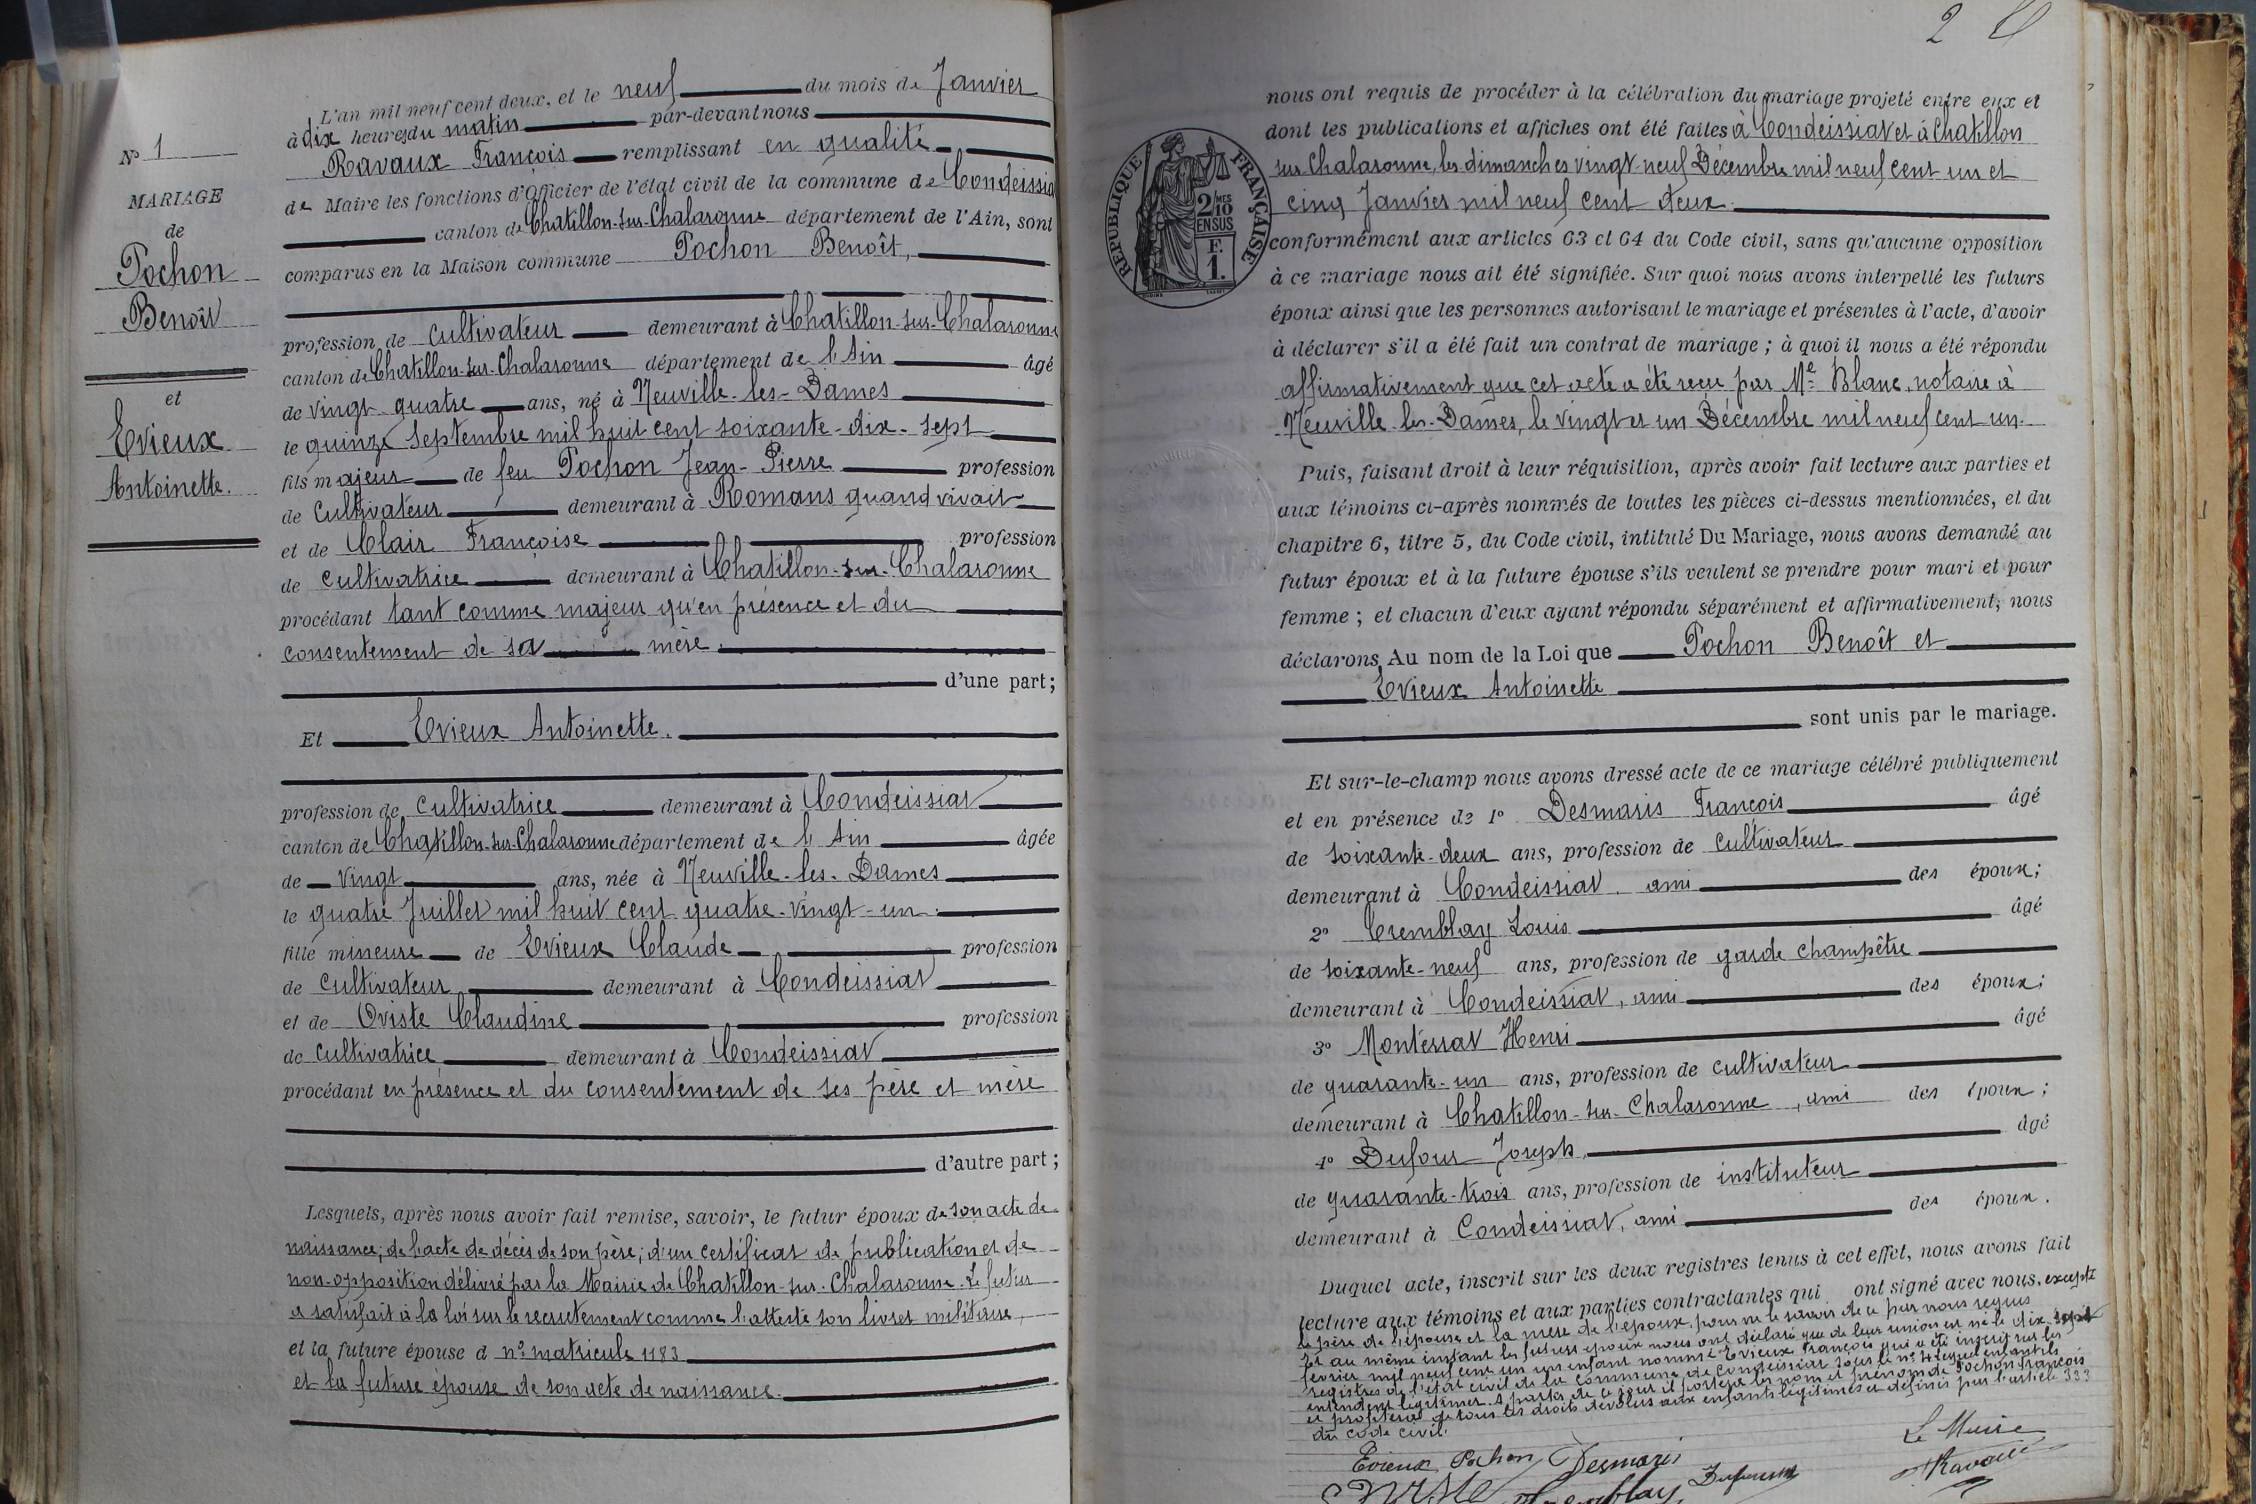 L'an mil neuf cent deux, et le neuf du mois de Janvier
à dix heures du matin par-devant nous
Ravaux François remplissant en qualité
de Maire les fonctions d'Officier de l'état civil de la commune de Condeissia
canton de Chatillon-sur-Chalaronne département de l'Ain, sont
comparus en la Maison commune Pochon Benoît,
profession de cultivateur demeurant à Chatillon-sur-Chalaronne
canton de Chatillon-sur-Chalaronne département de l'Ain âgé
de vingt-quatre ans, né à Neuville-les-Dames
le quinze Septembre mil huit cent soixante-dix-sept
fils majeur de feu Pochon Jean-Pierre profession
de cultivateur demeurant à Romans quand vivait
et de Clair Françoise profession
de cultivatrice demeurant à Chatillon-sur-Chalaronne
procédant tant comme majeur qu'en présence et du
consentement de sa mère.
d'une part;
Et Evieux Antoinette.
profession de cultivatrice demeurant à Condeissiat
canton de Chatillon-sur-Chalaronne département de l'Ain âgée
de vingt ans, née à Neuville-les-Dames
le quatre Juillet mil huit cent quatre-vingt-un.
fille mineure de Evieux Claude profession
de cultivateur demeurant à Condeissiat
et de Oviste Claudine profession
de cultivatrice demeurant à Condeissiat
procédant en présence et du consentement de ses père et mère
d'autre part;
Lesquels, après nous avoir fait remise, savoir, le futur époux de son acte de
naissance; de l'acte de décès de son père; d'un certificat de publication et de
non-opposition délivré par la Mairie de Chatillon-sur-Chalaronne. Le futur
a satisfait à la loi sur le recrutement comme l'atteste son livret militaire,
et la future épouse d n° matricule 1183
et la future épouse de son acte de naissance.
N° 1
MARIAGE
de
Pochon
Benoît
et
Evieux
Antoinette.
2
nous ont requis de procéder à la célébration du mariage projeté entre eux et
dont les publications et affiches ont été faites à Condeissiat et à Chatillon
sur Chalaronne, les dimanches vingt-neuf Décembre mil neuf cent un et
cinq Janvier mil neuf cent deux.
RÉPUBLIQUE FRANÇAISE
2/10 MES
EN SUS
F.
1.
conformément aux articles 63 et 64 du Code civil, sans qu'aucune opposition
à ce mariage nous ait été signifiée. Sur quoi nous avons interpellé les futurs
époux ainsi que les personnes autorisant le mariage et présentes à l'acte, d'avoir
à déclarer s'il a été fait un contrat de mariage; à quoi il nous a été répondu
affirmativement que cet acte a été reçu par Me Blanc, notaire à
Neuville-les-Dames, le vingt et un Décembre mil neuf cent un.
Puis, faisant droit à leur réquisition, après avoir fait lecture aux parties et
aux témoins ci-après nommés de toutes les pièces ci-dessus mentionnées, et du
chapitre 6, titre 5, du Code civil, intitulé Du Mariage, nous avons demandé au
futur époux et à la future épouse s'ils veulent se prendre pour mari et pour
femme; et chacun d'eux ayant répondu séparément et affirmativement; nous
déclarons Au nom de la Loi que Pochon Benoît et
Evieux Antoinette
sont unis par le mariage.
Et sur-le-champ nous avons dressé acte de ce mariage célébré publiquement
et en présence de 1° Desmaris François âgé
de soixante-deux ans, profession de cultivateur
demeurant à Condeissiat, ami des époux;
2° Tremblay Louis âgé
de soixante-neuf ans, profession de garde champêtre
demeurant à Condeissiat, ami des époux;
3° Montérrat Henri âgé
de quarante-un ans, profession de cultivateur
demeurant à Chatillon-sur-Chalaronne, ami des époux;
4° Dufour Joseph, âgé
de quarante-trois ans, profession de instituteur
demeurant à Condeissiat, ami des époux.
Duquel acte, inscrit sur les deux registres tenus à cet effet, nous avons fait
lecture aux témoins et aux parties contractantes qui ont signé avec nous, excepté
le père de l'épouse et la mère de l'époux, pour ne le savoir de ce par nous requis
Et au même instant les futurs époux nous ont déclaré que de leur union est né le dix-sept
février mil neuf cent un un enfant nommé Evieux François qui a été inscrit sur les
registres de l'état civil de la commune de Condeissiat sous le n° 4 lequel enfant ils
entendent légitimer. A partir de ce jour il portera les nom et prénom de Pochon François
et profitera de tous les droits dévolus aux enfants légitimés et définis par l'article 333
du code civil.
Evieux Pochon Desmaris
Le Maire
Tremblay Dufour Ravaux